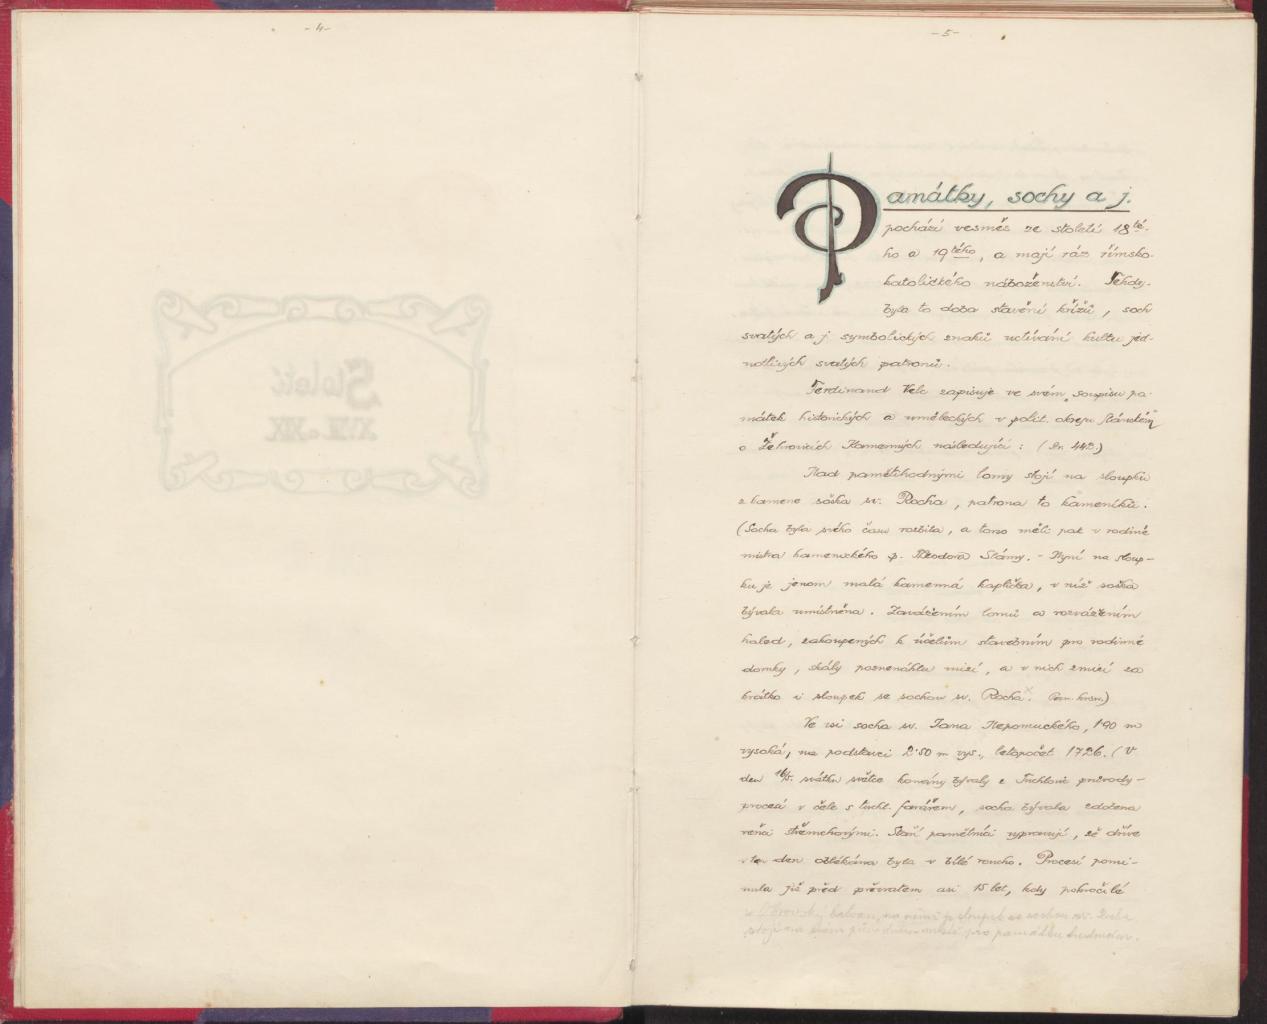 -4-
-5-
Památky, sochy a j.
pochází vesměs ze století 18té-
ho a 19tého, a mají ráz římsko-
katolického náboženství. Tehdy-
byla to doba stavění křížů, soch
svatých a j. symbolických znaků uctívání kultu jed-
notlivých svatých patronů.
Ferdinand Velc zapisuje ve svém „soupisu pa-
mátek historických a uměleckých v polit. okresu slánském“
o Žehrovicích Kamenných následující: (Str. 442.)
Nad pamětihodnými lomy stojí na sloupku
z kamene soška sv. Rocha, patrona to kameníků.
(Socha byla svého času rozbita, a torso měli pak v rodině
mistra kamenického p. Theodora Slámy. - Nyní na sloup-
ku je jenom malá kamenná kaplička, v níž soška
bývala umístněna. Zavážením lomů a rozvážením
hald, zakoupených k účelům stavebním pro rodinné
domky, skály poznenáhlu mizí, a v nich zmizí za
krátko i sloupek se sochou sv. Rocha. x
Ve vsi socha sv. Jana Nepomuckého, 1·90 m
vysoká, na podstavci 2·50 m vys., letopočet 1726. (V
den 16/5. svátku světce konány bývaly z Tuchlovic průvody-
procesí v čele s tuchl. farářem, socha bývala zdobena
věnci střemchovými. Staří pamětníci vypravují, že dříve
v ten den oblékána byla v bílé roucho. Procesí pomi-
nula již před převratem asi 15 let, kdy pokročilé
x Obrovský balvan, na němž je sloupek se sochou sv. Rocha
stojí na svém původním místě pro památku budoucím.